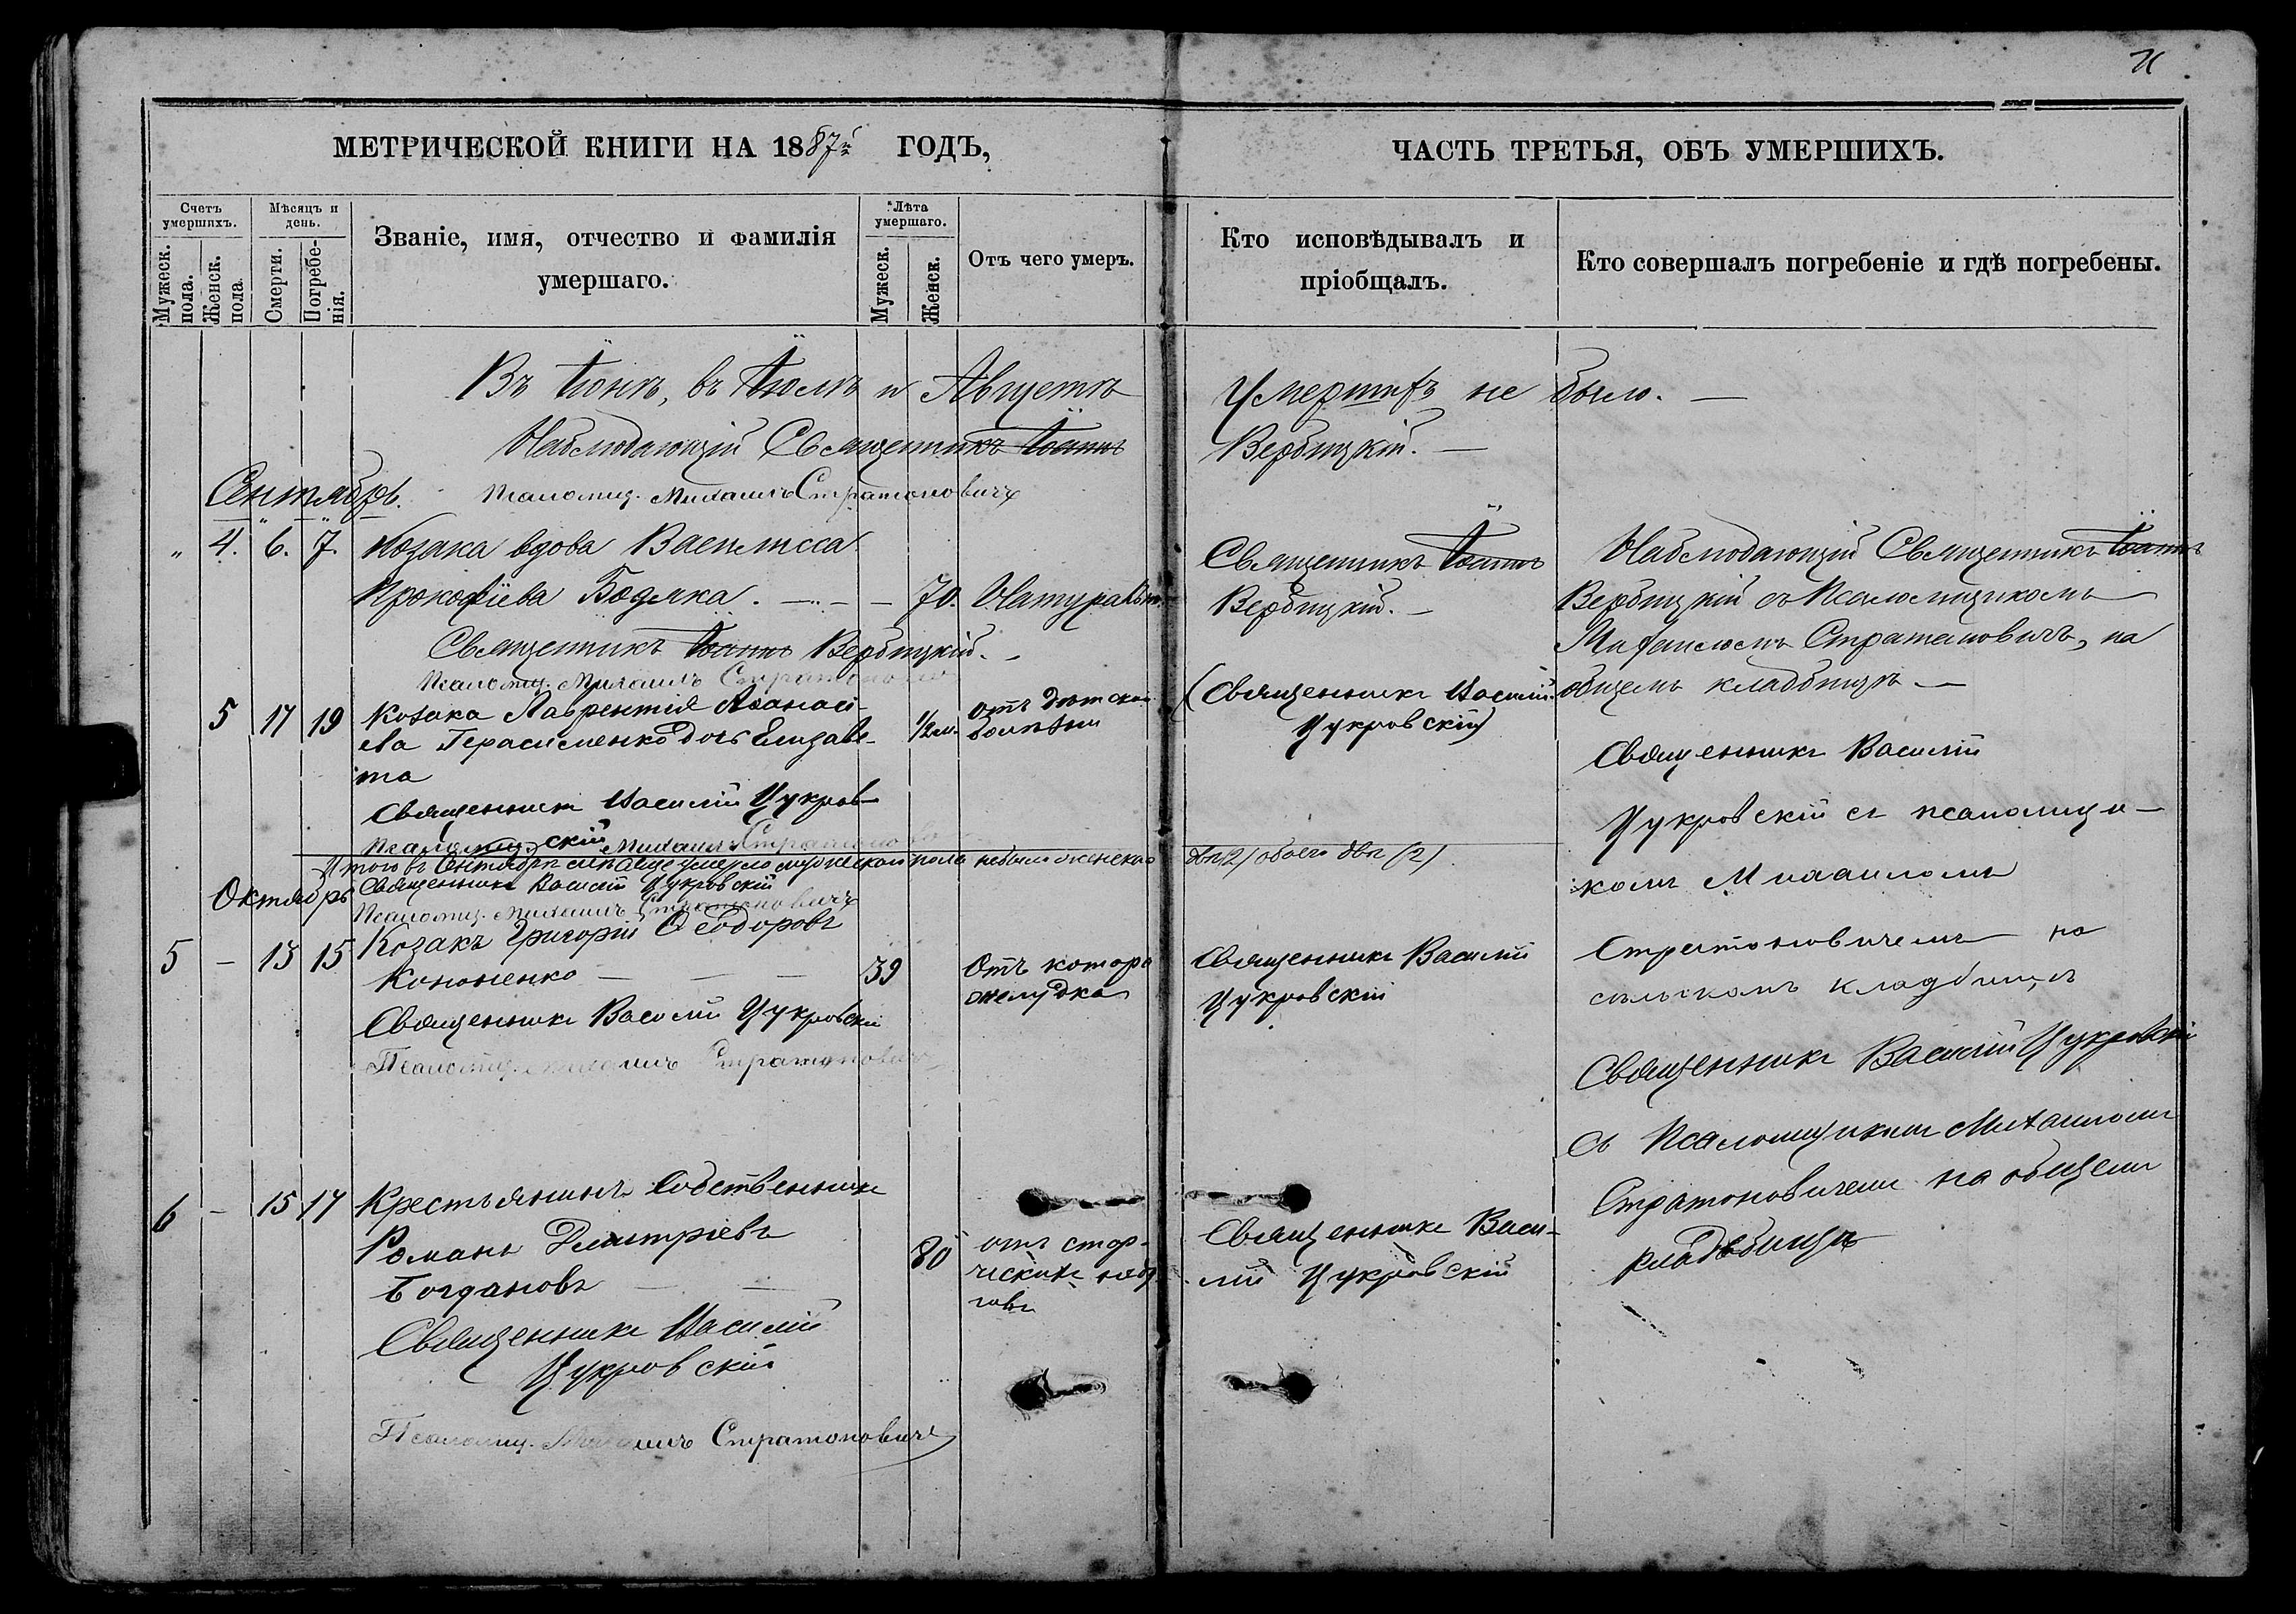 МЕТРИЧЕСКОЙ КНИГИ НА 1887й ГОДЪ,
ЧАСТЬ ТРЕТЬЯ, ОБЪ УМЕРШИХЪ.
Счетъ умершихъ.
Мужеск. пола.
Женск. пола.
Мѣсяцъ и день.
Смерти.
Погребенія.
Званіе, имя, отчество и фамилія
умершаго.
Лѣта умершаго.
Мужеск.
Женск.
Отъ чего умеръ.
Кто исповѣдывалъ и
пріобщалъ.
Кто совершалъ погребеніе и гдѣ погребены.
Въ Іюнѣ, въ Іюлѣ и Августѣ Умершихъ не было. —
Наблюдающій Священникъ Іоаннъ Вербицкій. —
Псаломщ. Михаилъ Стратоновичъ
Сентябрь.
„ 4. 6. 7. Козака вдова Василисса
Прокофіева Бодяка. — — 70. Натуральн.
Священникъ Іоаннъ Вербицкій. —
Псаломщ. Михаилъ
Священникъ Іоаннъ
Вербицкій. —
Наблюдающій Священникъ Іоаннъ
Вербицкій съ Псаломщикомъ
Михаиломъ Стратоновичъ, на
общемъ кладбищѣ —
5 17 19 Козака Лаврентія Аѳанась-
ева Герасименко дочь Елизаве-
та
1/2 м. отъ дѣтской
болѣзни
Священникъ Василій Цукров-
скій
Псаломщ. Михаилъ
(Священникъ Василій
Цукровскій)
Священникъ Василій
Цукровскій съ псаломщи-
комъ Михаиломъ
Стратоновичемъ на
сельскомъ кладбищѣ
Итого въ Сентябрѣ мѣсяцѣ умерло мужескаго пола небыло женскаго двѣ (2) обоего двѣ (2)
Священникъ Василій Цукровскій
Псаломщ. Михаилъ Стратоновичъ
Октябрь
5 — 13 15 Козакъ Григорій Ѳеодоровъ
Кононенко — — — 39
Отъ
желудка
Священникъ Василій Цукровскій
Псаломщ. Михаилъ Стратоновичъ
Священникъ Василій
Цукровскій
Священникъ Василій Цукровскій
съ Псаломщикомъ Михаиломъ
Стратоновичемъ на общемъ
кладбищѣ
6 — 15 17 Крестьянинъ Собственникъ
Романъ Дмитріевъ
Богдановъ — — 80
отъ
Священникъ Василій
Цукровскій
Псаломщ. Михаилъ Стратоновичъ
Священникъ Васи-
лій Цукровскій